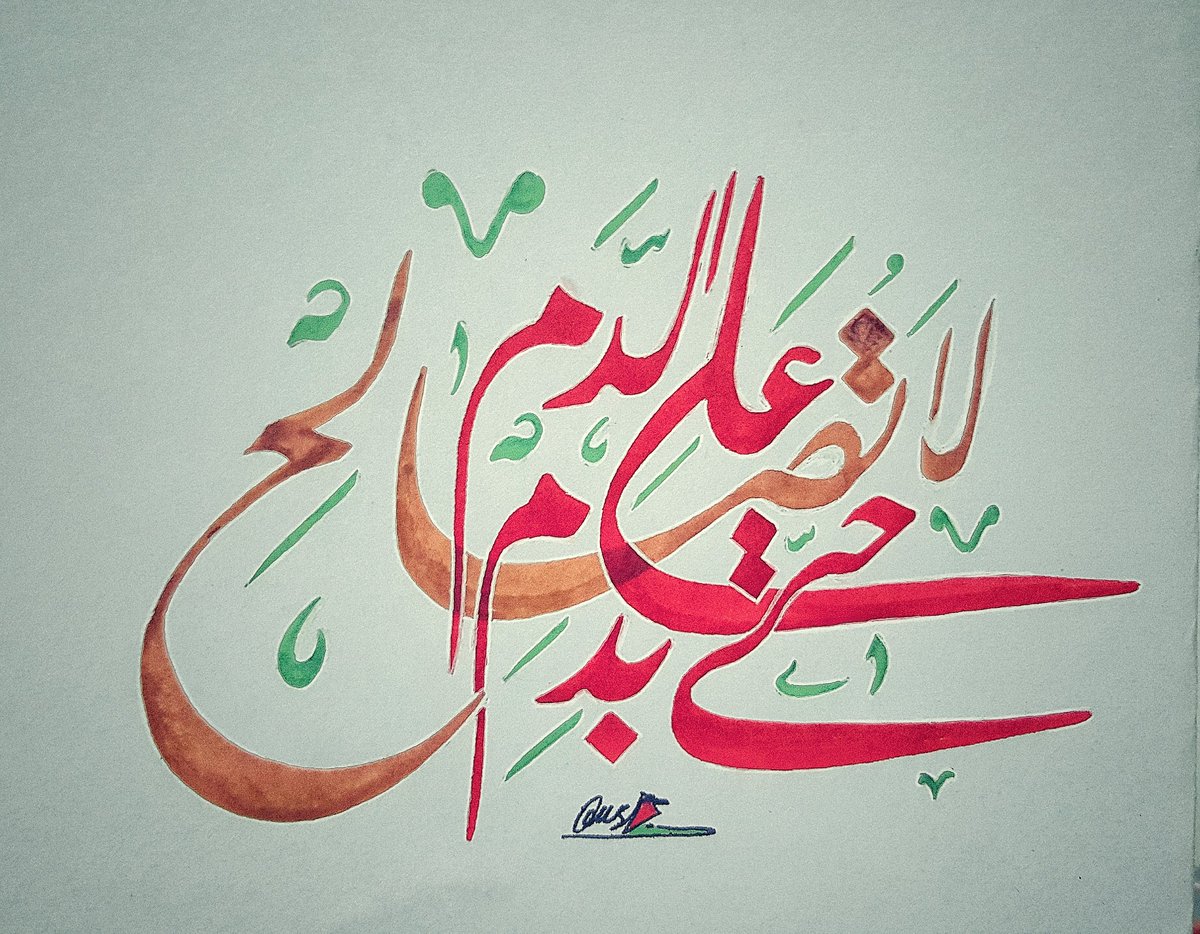 لَا تُصَالِح
عَلَى الدَّم
حَتَّى بِدَم